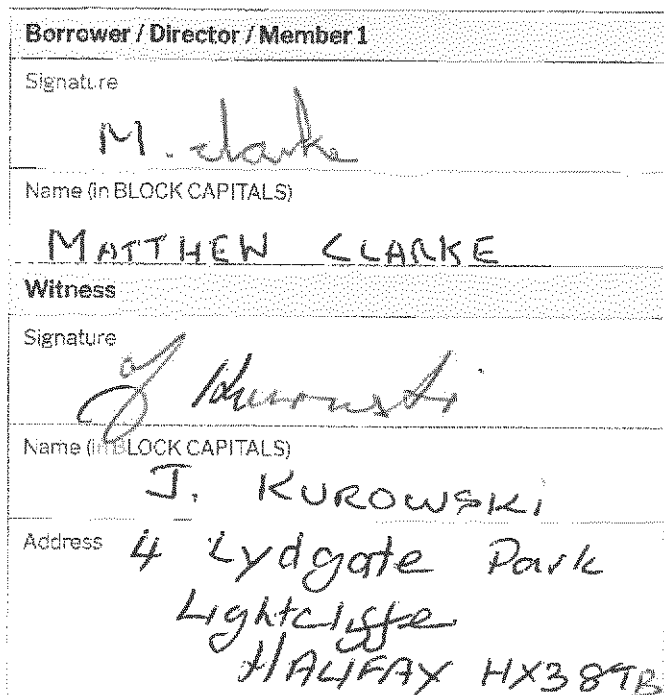 Borrower / Director / Member 1
Signature
M. Clarke
Name (in BLOCK CAPITALS)
MATTHEW CLARKE
Witness
Signature
J Kurowski
Name (in BLOCK CAPITALS)
J. KUROWSKI
Address 4 Lydgate Park
Lightcliffe
HALIFAX HX3 8TB